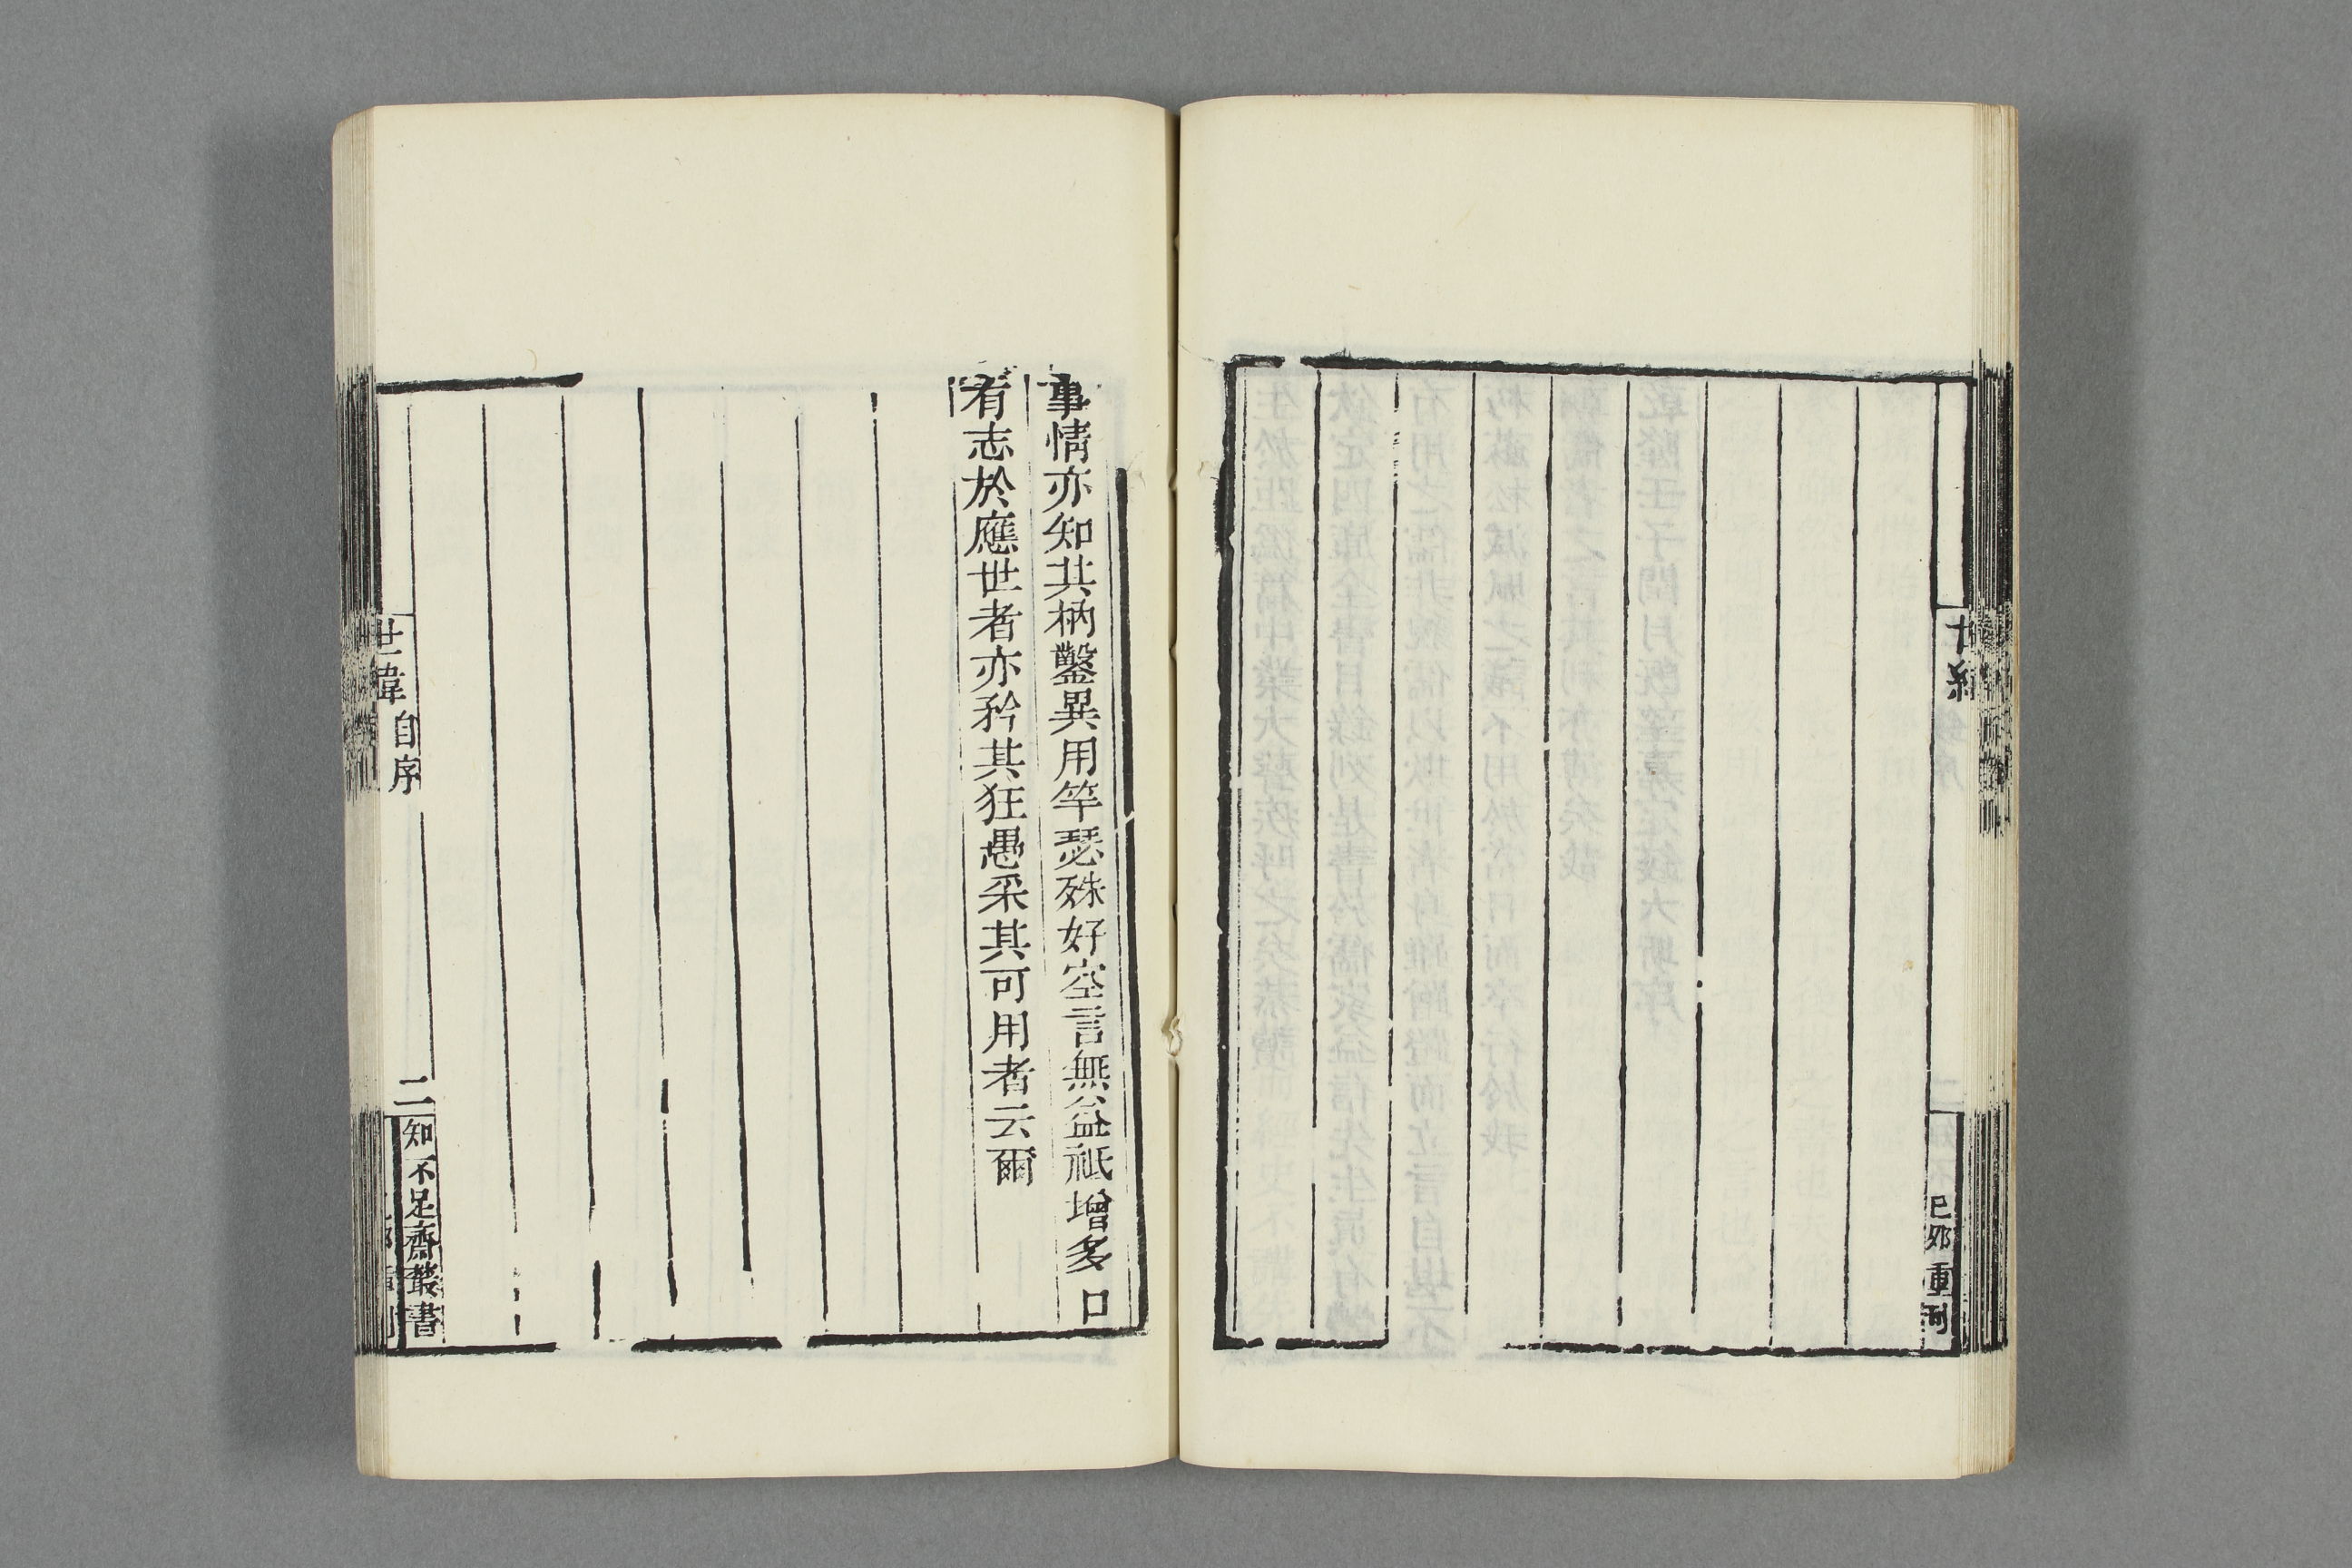 己夘重刊
事情亦知其枘鑿異用竽瑟殊好空言無益祇增多口
有志於應世者亦矜其狂愚采其可用者云爾
世緯
自序
二
知不足齋叢書